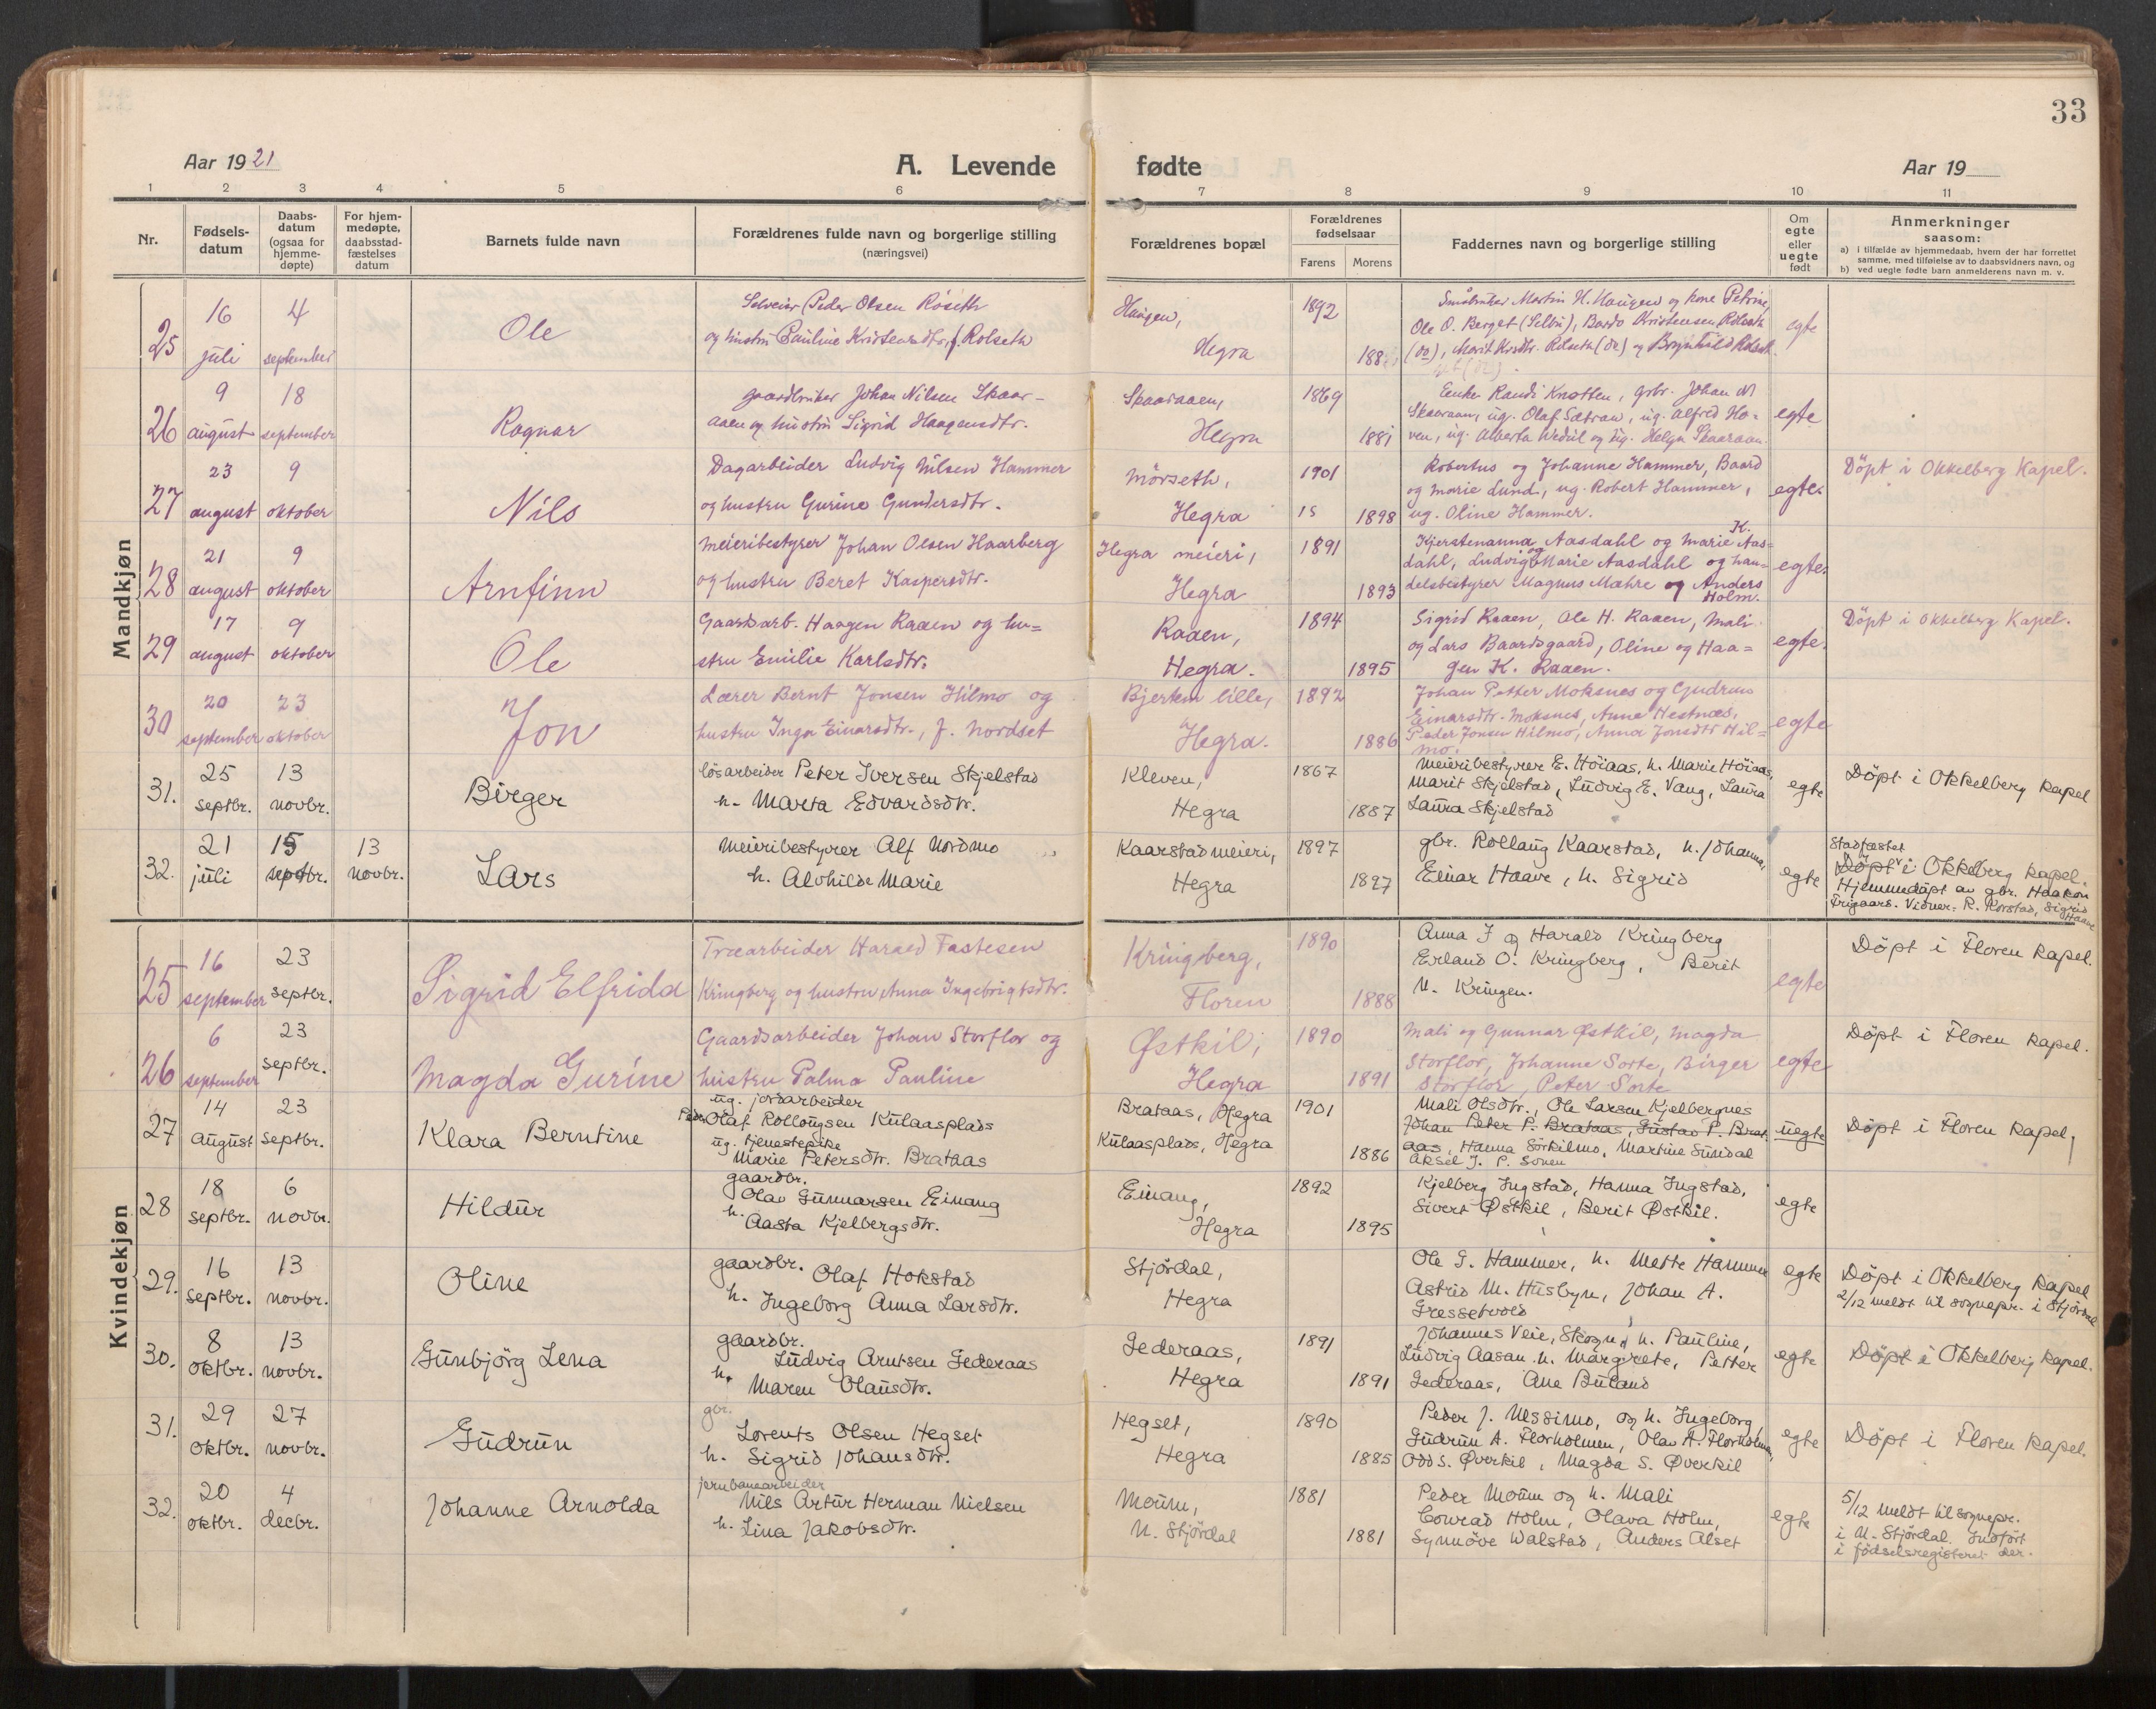 33
Aar 1921
A. Levende fødte
Aar 19
1 2 3 4 5 6 7 8 9 10 11
Nr.
Fødsels-
datum
Daabs-
datum
(ogsaa for
hjemme-
døpte)
For hjem-
medøpte,
daabsstad-
fæstelses
datum
Barnets fulde navn
Forældrenes fulde navn og borgerlige stilling
(næringsvei)
Forældrenes bopæl
Forældrenes
fødselsaar
Farens Morens
Faddernes navn og borgerlige stilling
Om
egte
eller
uegte
født
Anmerkninger
saasom:
a) i tilfælde av hjemmedaab, hvem der har forrettet
samme, med tilføielse av to daabsvidners navn, og
b) ved uegte fødte barn anmelderens navn m. v.
Mandkjøn
25
16 juli
4 september
Ole
Selveier Peder Olsen Röseth
og hustru Pauline Kristensdtr. f. Rolseth
Haugen,
Hegra
1892
188
Småbruker Martin H. Haugen og kone Petrine,
Ole O. Berget (Selbu), Bardo Kristensen Rolseth
(do), Marit Krsdtr. Rolseth (do) og Brynhild Rolseth
egte
26
9 august
18 september
Ragnar
gaardbruker Johan Nilsen Skaar-
aaen og hustru Sigrid Haagensdtr.
Skaaraaen,
Hegra
1869
1881
Enke Randi Knotten, grbr. Johan N
Skaaraan, ug. Olaf Sætran, ug. Alfred Ho-
ven, ug. Alberta Wedul og ug. Helga Skaaraan
egte
27
23 august
9 oktober
Nils
Dagarbeider Ludvig Nilsen Hammer
og hustru Gurine Gundersdtr.
Mörseth,
Hegra
1901
15
1898
Robertus og Johanne Hammer, Baard
og Marie Lund, ug. Robert Hammer,
ug. Oline Hammer.
egte.
Döpt i Okkelberg Kapel.
28
21 august
9 oktober
Arnfinn
Meieribestyrer Johan Olsen Haarberg
og hustru Beret Kaspersdtr.
Hegra meieri,
Hegra
1891
1893
Kjerstenanna Aasdahl og Marie K. Aas=
dahl, Ludvig og Marie Aasdahl og han=
delsbestyrer Magnus Mæhre og Anders
Holm.
egte.
29
17 august
9 oktober
Ole
Gaardsarb. Haagen Raaen og hu=
stru Emilie Karlsdtr.
Raaen,
Hegra.
1894
1895
Sigrid Raaen, Ole H. Raaen, Mali
og Lars Baardsgaard, Oline og Haa=
gen K. Raaen.
egte.
Döpt i Okkelberg Kapel.
30
20 september
23 oktober
Jon
Lærer Bernt Jonsen Hilmo og
hustru Inga Einarsdtr., f. Nordset
Bjerken lille,
Hegra.
1892
1886
Johan Petter Moksnes og Gudrun
Einarsdtr. Moksnes, Anne Hestnæs,
Peder Jonsen Hilmo, Anna Jonsdtr Hil=
mo.
egte
31.
25 septbr.
13 novbr.
Birger
lösarbeider Peter Iversen Skjelstad
h. Marta Edvardsdtr.
Kleven,
Hegra
1867
1887
Meieribestyrer E. Höiaas, h. Marie Höiaas,
Marit Skjelstad, Ludvig E. Vang, Laura
Laura Skjelstad
egte
Döpt i Okkelberg kapel
32.
21 juli
15 septbr.
13 novbr.
Lars
Meieribestyrer Alf Nordmo
h. Alvhilde Marie
Kaarstad meieri,
Hegra
1897
1897
gbr. Rollaug Kaarstad, h. Johanna
Einar Haave, h. Sigrid
egte
Stadfæstet
Döpt i Okkelberg kapel.
Hjemmedöpt av gbr. Haakon
Trigaard. Vidner: R. Korstad, Sigrid
Haave
Kvindekjøn
25
16 september
23 septbr.
Sigrid Elfrida
Træarbeider Harald Tastesen
Kringberg og hustru Anna Ingebrigtsdtr.
Kringberg,
Floren
1890
1888
Anna J og Harald Kringberg
Erland O. Kringberg, Berit
N. Kringen.
egte
Döpt i Floren kapel.
26
6 september
23 septbr.
Magda Gurine
Gaardsarbeider Johan Storflor og
hustru Palma Pauline
Østkil,
Hegra
1890
1891
Mali og Gunnar Østkil, Magda
Storflor, Johanne Sorte, Birger
Storflor, Peter Sorte
egte
Döpt i Floren kapel.
27
14 August
23 septbr.
Klara Berntine
ug. jordarbeider
Peder Olaf Rollaugsen Kulaasplads
ug. tjenestepike
Marie Petersdtr. Brataas
Brataas, Hegra
Kulaasplads, Hegra
1901
1886
Mali Olsdtr., Ole Larsen Kjelbergnes
Johan Peter P. Brataas, Gustav P. Brat
aas, Hanna Sörkilmo, Martine Sundal
Aksel J. P. Sonen
uegte
Döpt i Floren kapel,
28
18 septbr.
6 novbr.
Hildur
gaardbr.
Olav Gunnarsen Einang
h. Aasta Kjelbergsdtr.
Einang,
Hegra
1892
1895
Kjelberg Ingstad, Hanna Ingstad,
Sivert Østkil, Berit Østkil.
egte
29.
16 septbr.
13 novbr.
Oline
gaardbr. Olaf Hokstad
h. Ingeborg Anna Larsdtr.
Stjördal,
Hegra
Ole G. Hammer, h. Mette Hammer
Astrid M. Husbyn, Johan A.
Gressetvold
egte
Döpt i Okkelberg kapel
2/12 meldt til sognepr. i Stjördal
30.
8 oktbr.
13 novbr.
Gunbjörg Lena
gaardbr.
Ludvig Arntsen Gederaas
h. Maren Olausdtr.
Gederaas,
Hegra
1891
1891
Johannes Veie, Skogn, h. Pauline,
Ludvig Aasan h. Margrete, Petter
Gederaas, Ane Buland
egte
Döpt i Okkelberg kapel.
31.
29 oktbr.
27 novbr.
Gudrun
gbr.
Lorents Olsen Hegset
h. Sigrid Johansdtr.
Hegset,
Hegra
1890
1885
Peder J. Nessimo, og h. Ingeborg
Gudrun A. Florholmen, Olav A. Florholmen,
Odd S. Øverkil, Magda S. Øverkil
egte
Döpt i Floren kapel.
32.
20 oktbr.
4 decbr.
Johanne Arnolda
jernbanearbeider
Nils Artur Herman Nielsen
h. Lina Jakobsdtr.
Moum,
N. Stjördal
1881
1881
Peder Moum og h. Mali
Conrad Holm, Olava Holm,
Synnöve Walstad, Anders Alset
egte
5/12 meldt til sognepr.
i N. Stjördal. Indfört
i födselsregisteret der.